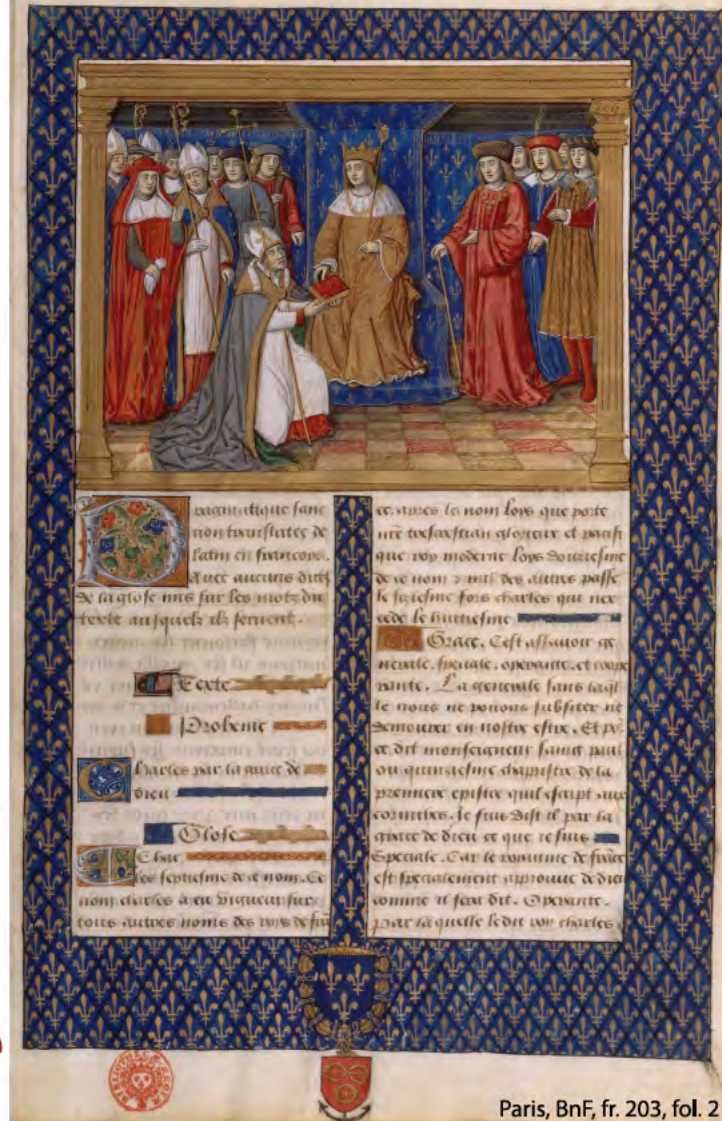 Pragmatique sanc
tion translatee de
latin en francoys.
Auec aucuns dictz
de la glose mis sur les motz du
texte ausquelz ilz seruent.
Texte
Proheme
Charles par la grace de
dieu
Glose
Char
les septiesme de ce nom. Ce
nom charles a eu vigueur sur
tous autres noms des roys de frā
ce. apres le nom loys que porte
nr̄e trescrestian glorieux et pacifi
que roy moderne loys douziesme
de ce nom
des autres passe
le fors charles qui nex
cede le huitiesme
Grace. Cest assauoir ge
nerale. speciale. operante. et coope
rante. La generale sans laql̄
le nous ne pouons subsister ne
demourer en nostre estre. Et po
ce dit monseigneur sainct paul
ou quinziesme chapistre de la
premiere epistre quil escript aux
corinthes. Je suis dist il par la
grace de dieu ce que ie suis
Speciale. Car le royaume de frāce
est specialement approuue de dieu
comme il sera dit. Operante.
Par la quelle ledit roy charles
Paris, BnF, fr. 203, fol. 2